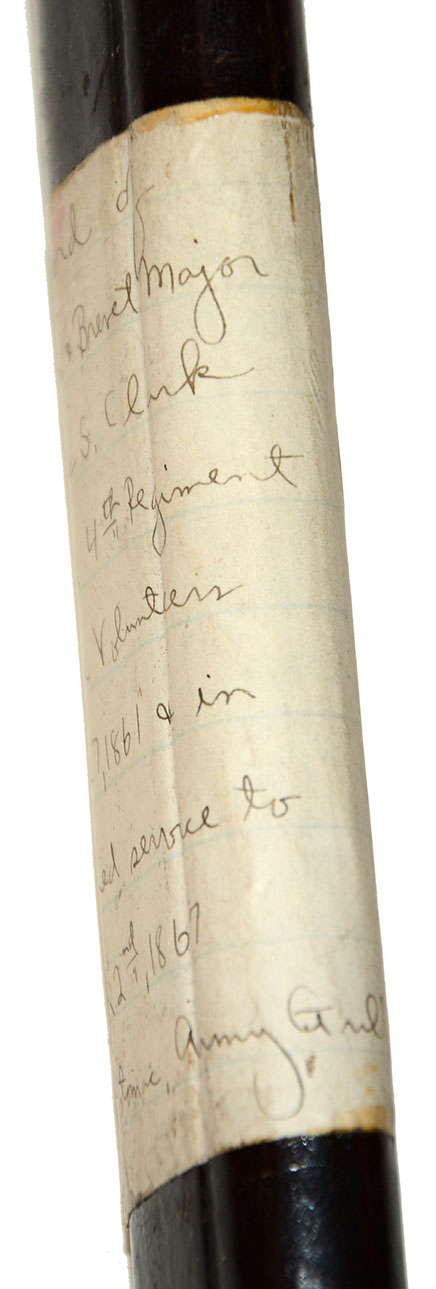 of
Brevet Major
S. Clark
4th Regiment
Volunteers
1861 & in
ed service to
2nd, 1867
tomic, Army Gul